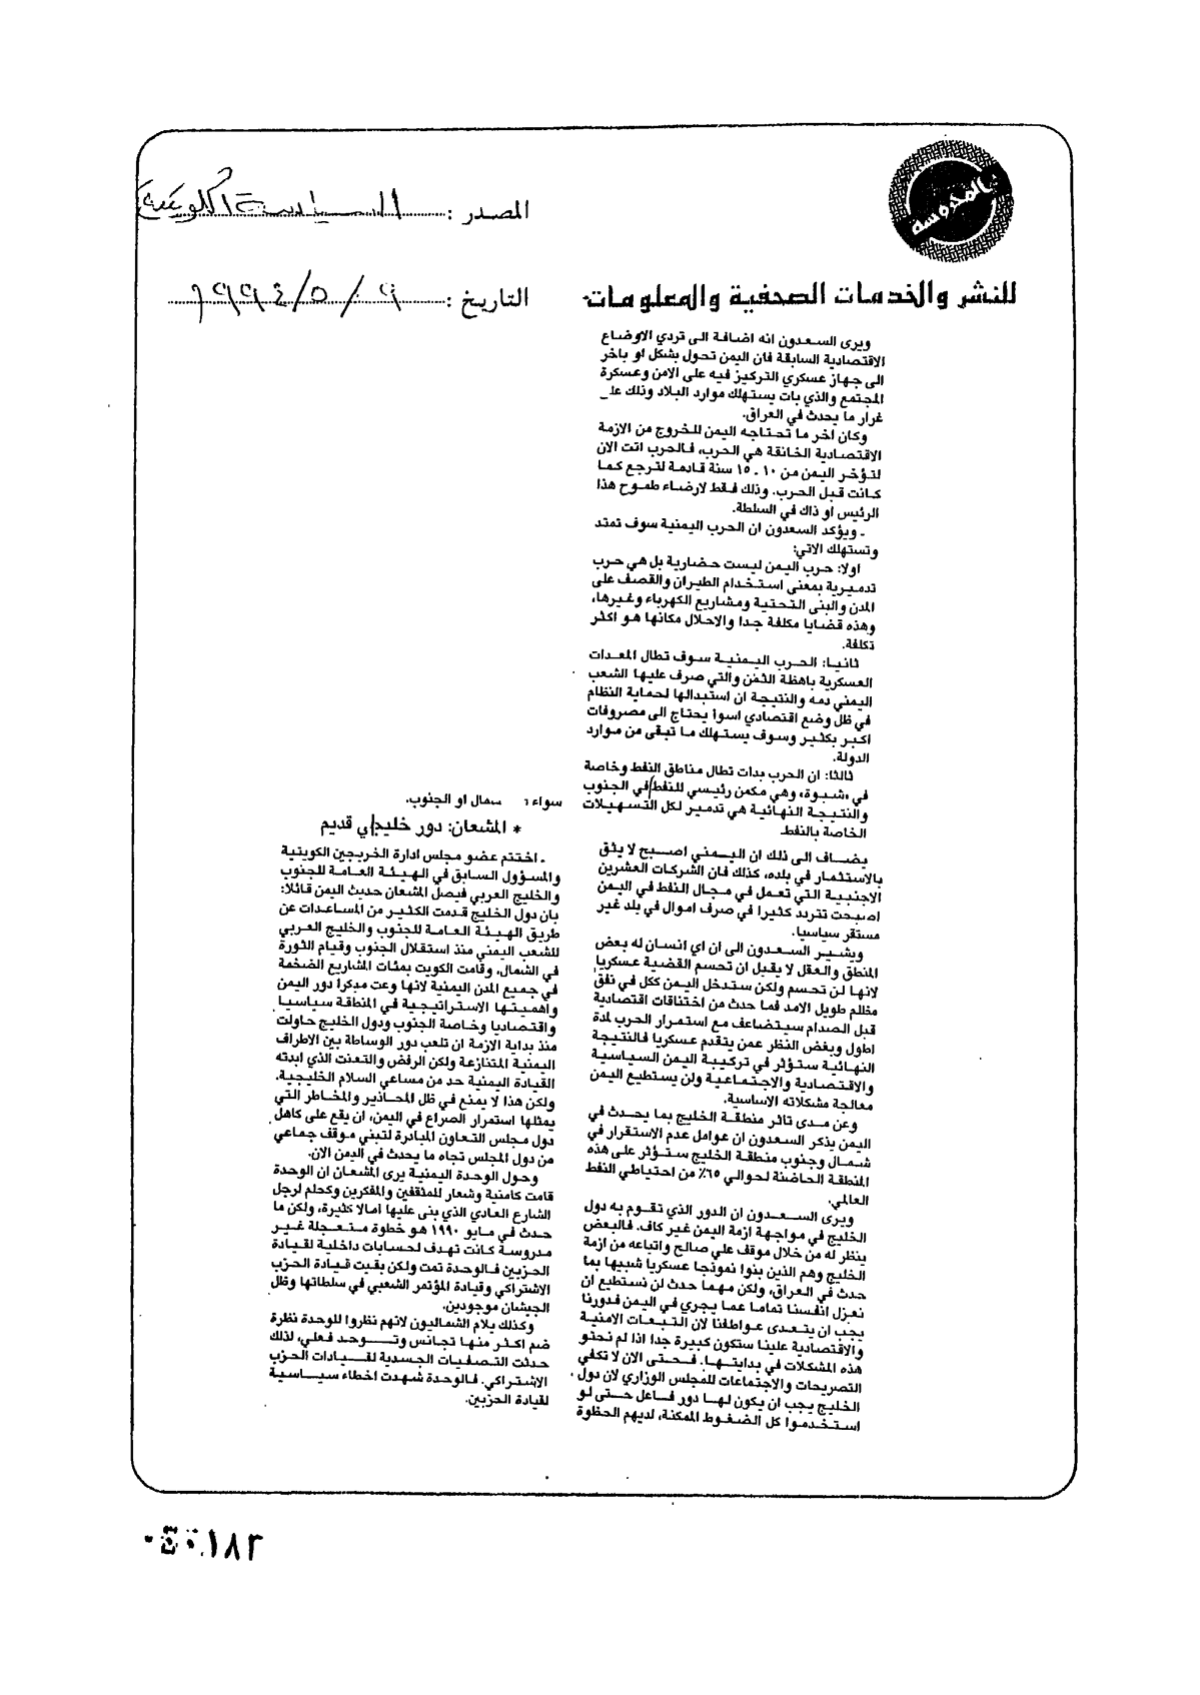 المحروسة
المصدر : السياسة الكويتية
للنشر والخدمات الصحفية والمعلومات
التاريخ : ٩ / ٥ / ١٩٩٤
ويرى السعدون انه اضافة الى تردي الاوضاع
الاقتصادية السابقة فان اليمن تحول بشكل او باخر
الى جهاز عسكري التركيز فيه على الامن وعسكرة
المجتمع والذي بات يستهلك موارد البلاد وذلك على
غرار ما يحدث في العراق.
وكان اخر ما تحتاجه اليمن للخروج من الازمة
الاقتصادية الخانقة هي الحرب، فالحرب اتت الان
لتؤخر اليمن من ١٠ ـ ١٥ سنة قادمة لترجع كما
كانت قبل الحرب. وذلك فقط لارضاء طموح هذا
الرئيس او ذاك في السلطة.
ـ ويؤكد السعدون ان الحرب اليمنية سوف تمتد
وتستهلك الاتي:
اولا: حرب اليمن ليست حضارية بل هي حرب
تدميرية بمعنى استخدام الطيران والقصف على
المدن والبنى التحتية ومشاريع الكهرباء وغيرها،
وهذه قضايا مكلفة جدا والاحلال مكانها هو اكثر
تكلفة.
ثانيا: الحرب اليمنية سوف تطال المعدات
العسكرية باهظة الثمن والتي صرف عليها الشعب
اليمني دمه والنتيجة ان استبدالها لحماية النظام
في ظل وضع اقتصادي اسوأ يحتاج الى مصروفات
اكبر بكثير وسوف يستهلك ما تبقى من موارد
الدولة.
ثالثا: ان الحرب بدات تطال مناطق النفط وخاصة
في «شبوة» وهي مكمن رئيسي للنفط في الجنوب
والنتيجة النهائية هي تدمير لكل التسهيلات
الخاصة بالنفط.
يضاف الى ذلك ان اليمني اصبح لا يثق
بالاستثمار في بلده، كذلك فان الشركات العشرين
الاجنبية التي تعمل في مجال النفط في اليمن
اصبحت تتردد كثيرا في صرف اموال في بلد غير
مستقر سياسيا.
ويشير السعدون الى ان اي انسان له بعض
المنطق والعقل لا يقبل ان تحسم القضية عسكريا
لانها لن تحسم ولكن ستدخل اليمن ككل في نفق
مظلم طويل الامد فما حدث من اختناقات اقتصادية
قبل الصدام سيتضاعف مع استمرار الحرب لمدة
اطول وبغض النظر عمن يتقدم عسكريا فالنتيجة
النهائية ستؤثر في تركيبة اليمن السياسية
والاقتصادية والاجتماعية ولن يستطيع اليمن
معالجة مشكلاته الاساسية.
وعن مدى تاثر منطقة الخليج بما يحدث في
اليمن يذكر السعدون ان عوامل عدم الاستقرار في
شمال وجنوب منطقة الخليج ستؤثر على هذه
المنطقة الحاضنة لحوالي ٦٥٪ من احتياطي النفط
العالمي.
ويرى السعدون ان الدور الذي تقوم به دول
الخليج في مواجهة ازمة اليمن غير كاف. فالبعض
ينظر له من خلال موقف علي صالح واتباعه من ازمة
الخليج وهم الذين بنوا نموذجا عسكريا شبيها بما
حدث في العراق، ولكن مهما حدث لن نستطيع ان
نعزل انفسنا تماما عما يجري في اليمن فدورنا
يجب ان يتعدى عواطفنا لان التبعات الامنية
والاقتصادية علينا ستكون كبيرة جدا اذا لم نحتو
هذه المشكلات في بدايتها. فحتى الان لا تكفي
التصريحات والاجتماعات للمجلس الوزاري لان دول
الخليج يجب ان يكون لها دور فاعل حتى لو
استخدموا كل الضغوط الممكنة، لديهم الحظوة
سواء شمال او الجنوب.
* المشعان: دور خليجي قديم
ـ اختتم عضو مجلس ادارة الخريجين الكويتية
والمسؤول السابق في الهيئة العامة للجنوب
والخليج العربي فيصل المشعان حديث اليمن قائلا:
بان دول الخليج قدمت الكثير من المساعدات عن
طريق الهيئة العامة للجنوب والخليج العربي
للشعب اليمني منذ استقلال الجنوب وقيام الثورة
في الشمال، وقامت الكويت بمئات المشاريع الضخمة
في جميع المدن اليمنية لانها وعت مبكرا دور اليمن
واهميتها الاستراتيجية في المنطقة سياسيا
واقتصاديا وخاصة الجنوب ودول الخليج حاولت
منذ بداية الازمة ان تلعب دور الوساطة بين الاطراف
اليمنية المتنازعة ولكن الرفض والتعنت الذي ابدته
القيادة اليمنية حد من مساعي السلام الخليجية.
ولكن هذا لا يمنع في ظل المحاذير والمخاطر التي
يمثلها استمرار الصراع في اليمن، ان يقع على كاهل
دول مجلس التعاون المبادرة لتبني موقف جماعي
من دول المجلس تجاه ما يحدث في اليمن الان.
وحول الوحدة اليمنية يرى المشعان ان الوحدة
قامت كامنية وشعار للمثقفين والمفكرين وكحلم لرجل
الشارع العادي الذي بنى عليها امالا كثيرة، ولكن ما
حدث في مايو ١٩٩٠ هو خطوة متعجلة غير
مدروسة كانت تهدف لحسابات داخلية لقيادة
الحزبين فالوحدة تمت ولكن بقيت قيادة الحزب
الاشتراكي وقيادة المؤتمر الشعبي في سلطاتها وظل
الجيشان موجودين.
وكذلك يلام الشماليون لانهم نظروا للوحدة نظرة
ضم اكثر منها تجانس وتوحد فعلي، لذلك
حدثت التصفيات الجسدية لقيادات الحزب
الاشتراكي. فالوحدة شهدت اخطاء سياسية
لقيادة الحزبين.
١٨٢